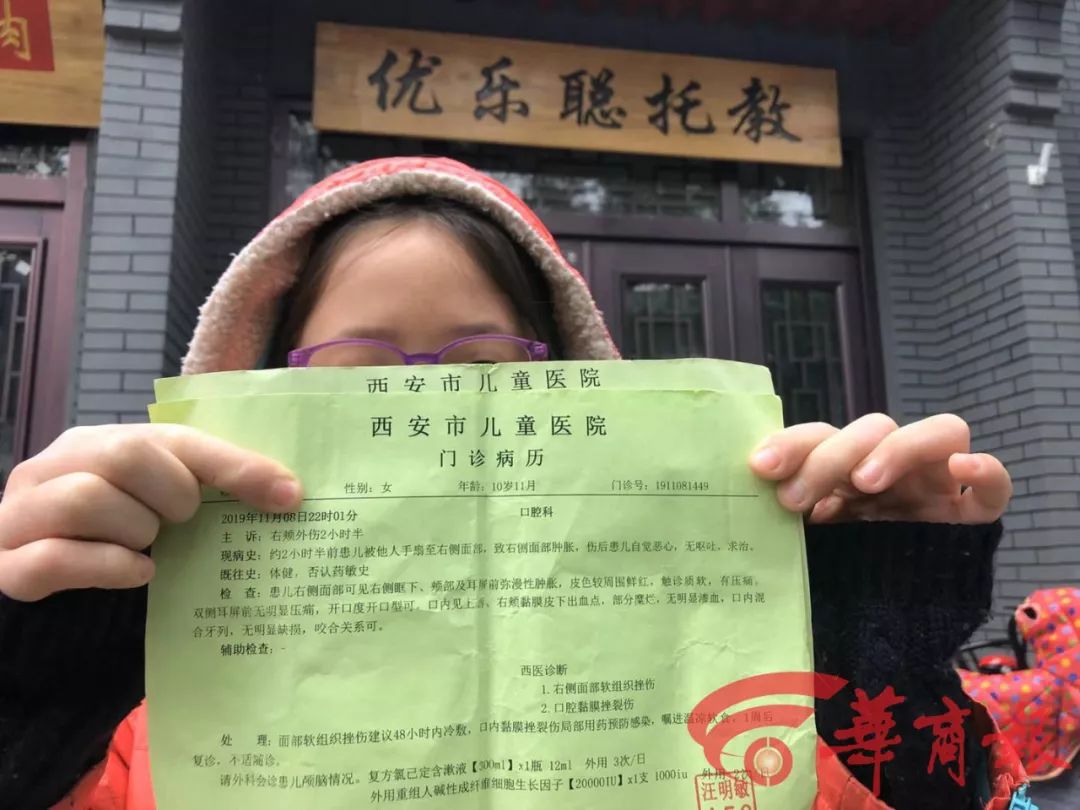 肉
优乐聪托教
西安市儿童医院
西安市儿童医院
门诊病历
性别：女 年龄：10岁11月 门诊号：1911081449
2019年11月08日22时01分 口腔科
主 诉：右颊外伤2小时半
现病史：约2小时半前患儿被他人手扇至右侧面部，致右侧面部肿胀，伤后患儿自觉恶心，无呕吐，求治。
既往史：体健，否认药敏史
检 查：患儿右侧面部可见右侧眶下、颊部及耳屏前弥漫性肿胀，皮色较周围鲜红，触诊质软，有压痛，
双侧耳屏前无明显压痛，开口度开口型可。口内见上唇、右颊黏膜皮下出血点，部分糜烂，无明显渗血，口内混
合牙列，无明显缺损，咬合关系可。
辅助检查：-
西医诊断
1. 右侧面部软组织挫伤
2. 口腔黏膜挫裂伤
处 理：面部软组织挫伤建议48小时内冷敷，口内黏膜挫裂伤局部用药预防感染，嘱进温凉软食，1周后
复诊，不适随诊。
请外科会诊患儿颅脑情况。复方氯己定含漱液【300ml】x1瓶 12ml 外用 3次/日
外用重组人碱性成纤维细胞生长因子【20000IU】x1支 1000iu 外用
汪明敏
華商報